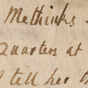 Methinks
Quarters at
I tell her